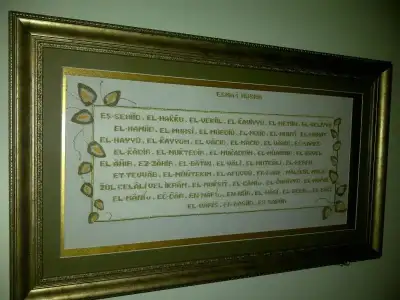 ESMA-İ HÜSNA
EŞ-ŞEHİD . EL-HAKKU . EL-VEKİL . EL-KAVİYYU . EL-METİN . EL-VELİYYU
EL-HAMİD . EL-MUHSİ . EL-MÜBDİÜ . EL-MUİD . EL-MUHYİ
EL-HAYYU . EL-KAYYUM . EL-VACİD . EL-MACİD . EL-VAHİD . ES-SAMED
EL-KADİR . EL-MUKTEDİR . EL-MUKADDİM . EL-MUAHHİR . EL-EVVEL
EL-AHİR . EZ-ZAHİR . EL-BATIN . EL-VALİ . EL-MUTEALİ . EL-BERR
ET-TEVVAB . EL-MÜNTEKİM . EL-AFUVVU . ER-RAUF . MALİKÜL MÜLK
ZÜL CELALİ VEL İKRAM . EL-MUKSİT . EL-CAMİ
EL-MANİ . ED-DAR . EN-NAFİ . EN-NUR . EL-HADİ . EL-BEDİ . EL-BAKİ
EL-VARİS . ER-REŞİD . ES-SABUR